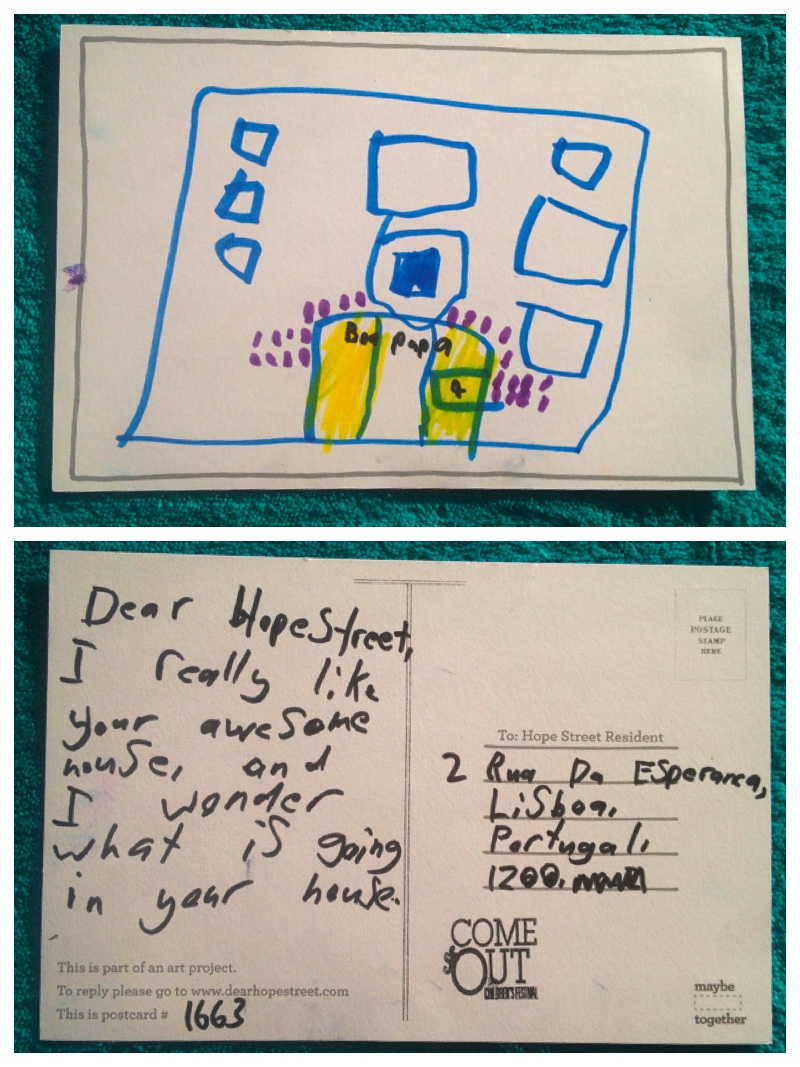 Boa papa
4
Dear HopeStreet,
I really like
your awesome
house, and
I wonder
what is going
in your house.
This is part of an art project.
To reply please go to www.dearhopestreet.com
This is postcard # 1663
PLACE
POSTAGE
STAMP
HERE
To: Hope Street Resident
2 Rua Da ESperanca,
LiSboa,
Portugal,
1200,
COME
OUT
CHILDREN'S FESTIVAL
maybe
together